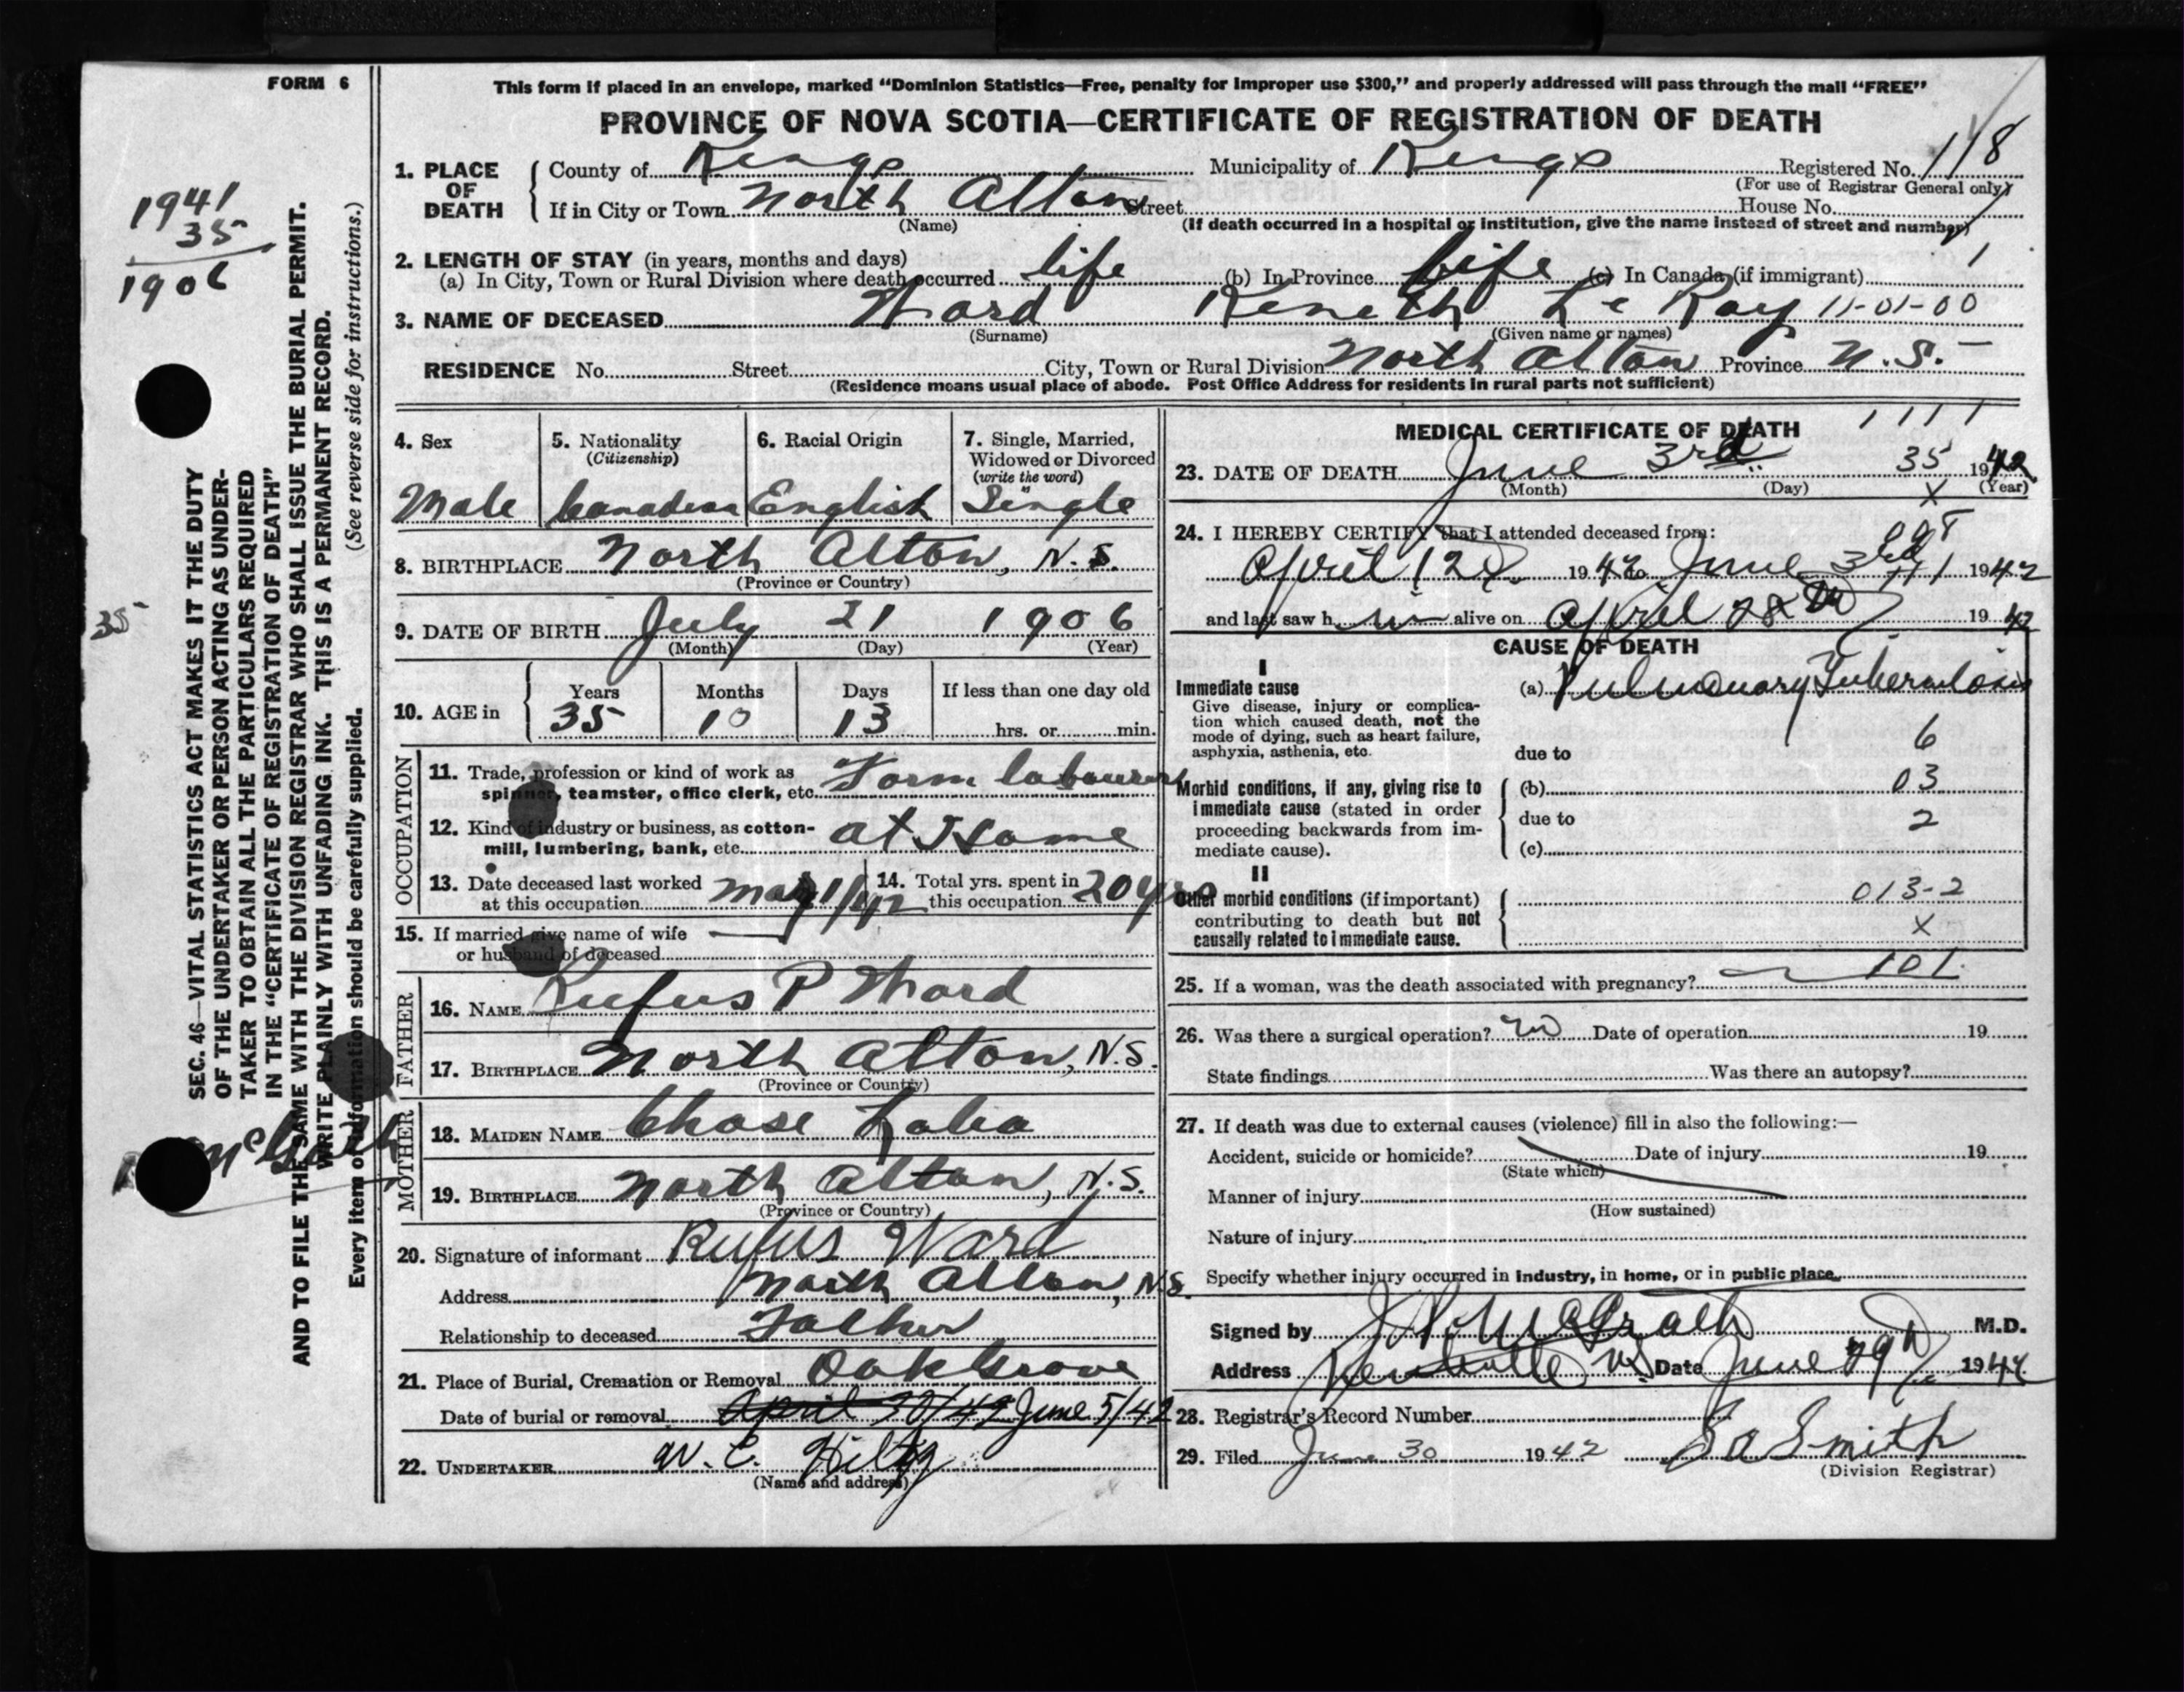 FORM 6
This form if placed in an envelope, marked "Dominion Statistics—Free, penalty for improper use $300," and properly addressed will pass through the mail "FREE"
PROVINCE OF NOVA SCOTIA—CERTIFICATE OF REGISTRATION OF DEATH
1. PLACE OF DEATH County of Kings Municipality of Kings Registered No. 118
(For use of Registrar General only)
If in City or Town North Alton Street House No.
(Name) (If death occurred in a hospital or institution, give the name instead of street and number)
2. LENGTH OF STAY (in years, months and days)
(a) In City, Town or Rural Division where death occurred life (b) In Province life (c) In Canada (if immigrant) 1
3. NAME OF DECEASED Ward Keneth Le Roy 11-01-00
(Surname) (Given name or names)
RESIDENCE No. Street City, Town or Rural Division North Alton Province N.S.
(Residence means usual place of abode. Post Office Address for residents in rural parts not sufficient)
1941
35
1906
35
SEC. 46—VITAL STATISTICS ACT MAKES IT THE DUTY
OF THE UNDERTAKER OR PERSON ACTING AS UNDER-
TAKER TO OBTAIN ALL THE PARTICULARS REQUIRED
IN THE "CERTIFICATE OF REGISTRATION OF DEATH"
AND TO FILE THE SAME WITH THE DIVISION REGISTRAR WHO SHALL ISSUE THE BURIAL PERMIT.
WRITE PLAINLY WITH UNFADING INK. THIS IS A PERMANENT RECORD.
Every item of information should be carefully supplied. (See reverse side for instructions.)
McGrath
4. Sex 5. Nationality 6. Racial Origin 7. Single, Married,
(Citizenship) Widowed or Divorced
(write the word)
Male Canadian English Single
8. BIRTHPLACE North Alton, N.S.
(Province or Country)
9. DATE OF BIRTH July 21 1906
(Month) (Day) (Year)
10. AGE in Years Months Days If less than one day old
35 10 13 hrs. or min.
OCCUPATION
11. Trade, profession or kind of work as
spinner, teamster, office clerk, etc. Farm labourer
12. Kind of industry or business, as cotton-
mill, lumbering, bank, etc. at Home
13. Date deceased last worked
at this occupation May 1/42
14. Total yrs. spent in
this occupation 20 yrs
15. If married give name of wife
or husband of deceased
FATHER
16. NAME Rufus P Ward
17. BIRTHPLACE North Alton, N.S.
(Province or Country)
MOTHER
18. MAIDEN NAME Chase Lalia
19. BIRTHPLACE North Alton, N.S.
(Province or Country)
20. Signature of informant Rufus Ward
Address North Alton, N.S.
Relationship to deceased Father
21. Place of Burial, Cremation or Removal Oak Grove
Date of burial or removal April 30/42 June 5/42
22. UNDERTAKER W. C. Hiltz
(Name and address)
1 1 1 1
MEDICAL CERTIFICATE OF DEATH
23. DATE OF DEATH June 3rd 35 1942
(Month) (Day) (Year)
X
24. I HEREBY CERTIFY that I attended deceased from:
April 12th 1942 to June 3rd 1942
and last saw h im alive on April 28th 1942
CAUSE OF DEATH
I
Immediate cause (a) Pulmonary Tuberculosis
Give disease, injury or complica-
tion which caused death, not the
mode of dying, such as heart failure,
asphyxia, asthenia, etc.
due to 6
Morbid conditions, if any, giving rise to
immediate cause (stated in order
proceeding backwards from im-
mediate cause).
(b) 03
due to 2
(c)
II
Other morbid conditions (if important)
contributing to death but not
causally related to immediate cause.
013-2
X
25. If a woman, was the death associated with pregnancy? 101
26. Was there a surgical operation? no Date of operation 19
State findings Was there an autopsy?
27. If death was due to external causes (violence) fill in also the following:—
Accident, suicide or homicide? Date of injury 19
(State which)
Manner of injury
(How sustained)
Nature of injury
Specify whether injury occurred in industry, in home, or in public place
Signed by J P McGrath M.D.
Address Kentville NS Date June 29th 1942
28. Registrar's Record Number
29. Filed June 30 1942 Smith
(Division Registrar)